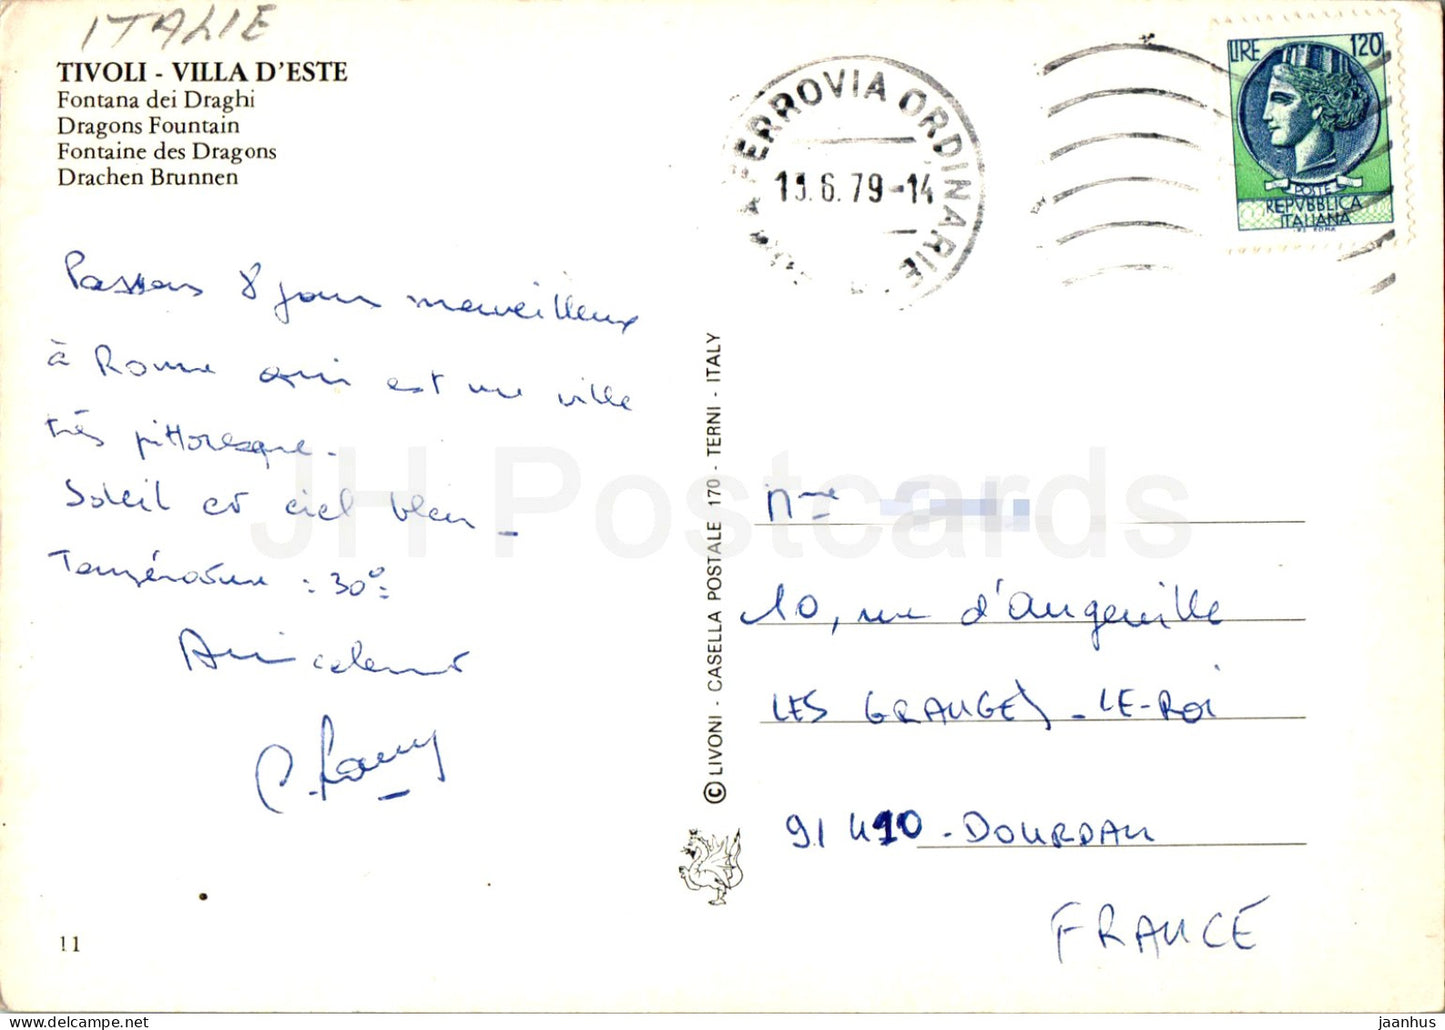 ITALIE
TIVOLI - VILLA D'ESTE
Fontana dei Draghi
Dragons Fountain
Fontaine des Dragons
Drachen Brunnen
Passons 8 jours merveilleux
à Rome qui est une ville
très pittoresque.
Soleil et ciel bleu -
Température : 30°.
Amicalement
11
© LIVONI - CASELLA POSTALE 170 - TERNI - ITALY
FERROVIA ORDINARIE
13.6.79-14
LIRE 120
POSTE
REPVBBLICA
ITALIANA
10, rue d'Angeville
LES GRANGES - LE-ROI
91410 - DOURDAN
FRANCE
JH Postcards
jaanhus | delcampe.net